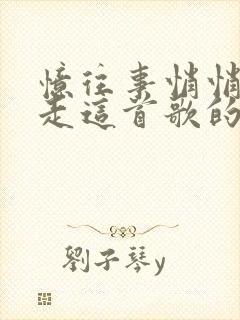 憶往事悄悄
走這首歌的
劉子琴y